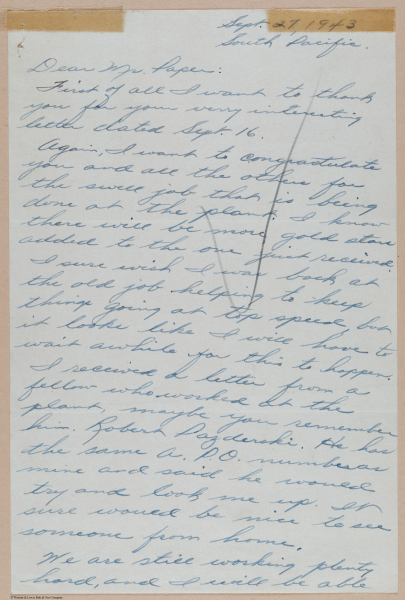 Sept. 27, 1943
South Pacific.
Dear Mr. Paper:
First of all I want to thank
you for your very interesting
letter dated Sept. 16.
Again, I want to congratulate
you and all the others for
the swell job that is being
done at the plant. I know
there will be more gold stars
added to the one just received.
I sure wish I was back at
the old job helping to keep
things going at top speed, but
it looks like I will have to
wait awhile for this to happen.
I received a letter from a
fellow who worked at the
plant, maybe you remember
him. Robert Dazderski. He has
the same A. P.O. number as
mine and said he would
try and look me up. It
sure would be nice to see
someone from home.
We are still working plenty
hard, and I will be able